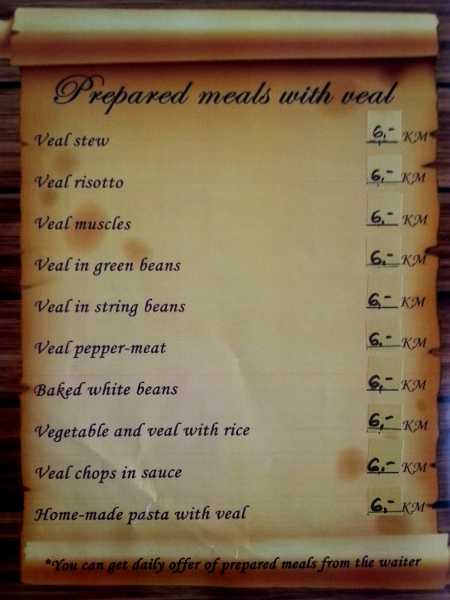 Prepared meals with veal
Veal stew 6,- KM
Veal risotto 6,- KM
Veal muscles 6,- KM
Veal in green beans 6,- KM
Veal in string beans 6,- KM
Veal pepper-meat 6,- KM
Baked white beans 6,- KM
Vegetable and veal with rice 6,- KM
Veal chops in sauce 6,- KM
Home-made pasta with veal 6,- KM
*You can get daily offer of prepared meals from the waiter